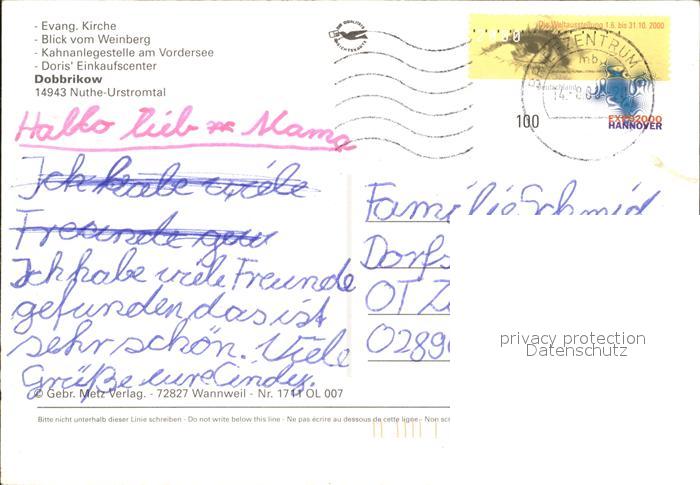 - Evang. Kirche
- Blick vom Weinberg
- Kahnanlegestelle am Vordersee
- Doris' Einkaufscenter
Dobbrikow
14943 Nuthe-Urstromtal
Die Weltausstellung 1.6. bis 31.10. 2000
Deutschland
100
EXPO2000
HANNOVER
BRIEFZENTRUM
Hallo lieb Mama
Ich habe viele
Freunde gew
Ich habe viele Freunde
gefunden das ist
sehr schön. Viele
Grüße eure Cindy.
Familie Schmid
Dorfs
OT Z
0289
privacy protection
Datenschutz
© Gebr. Metz Verlag. - 72827 Wannweil - Nr. 1711 OL 007
Bitte nicht unterhalb dieser Linie schreiben - Do not write below this line - Ne pas écrire au dessous de cette ligne - Non sc